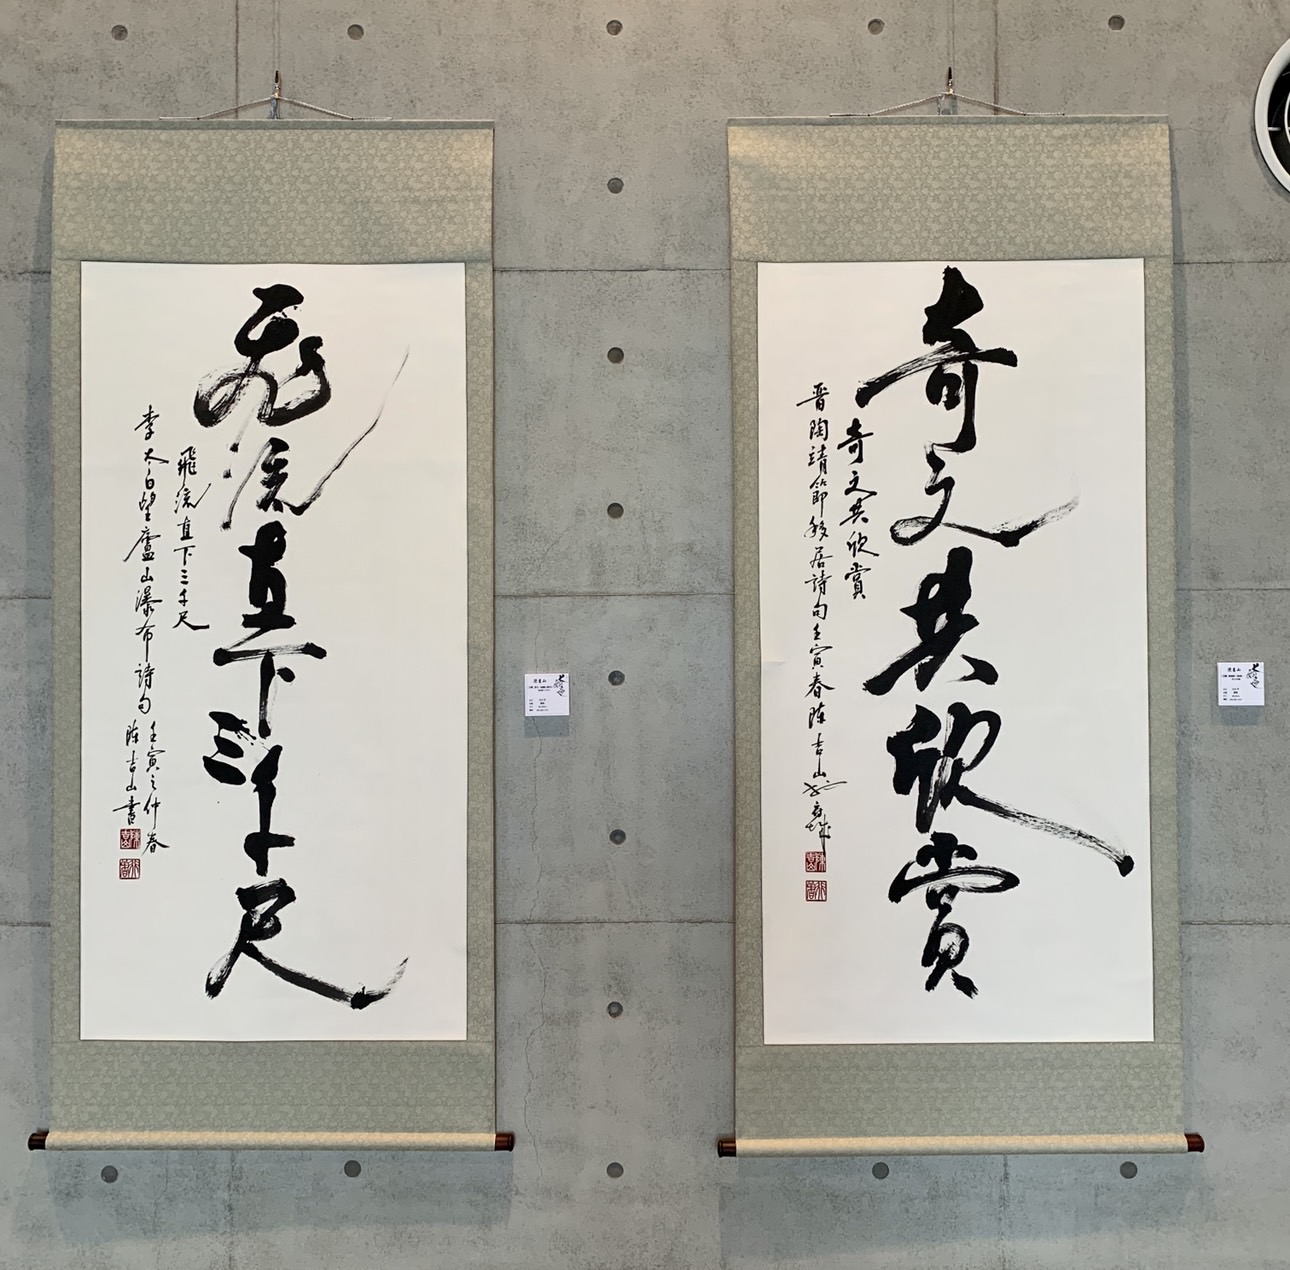 奇文共欣賞
奇文共欣賞
晉陶靖節移居詩句壬寅春陳吉山
飛流直下三千尺
飛流直下三千尺
李太白望廬山瀑布詩句
壬寅之仲春
陳吉山書